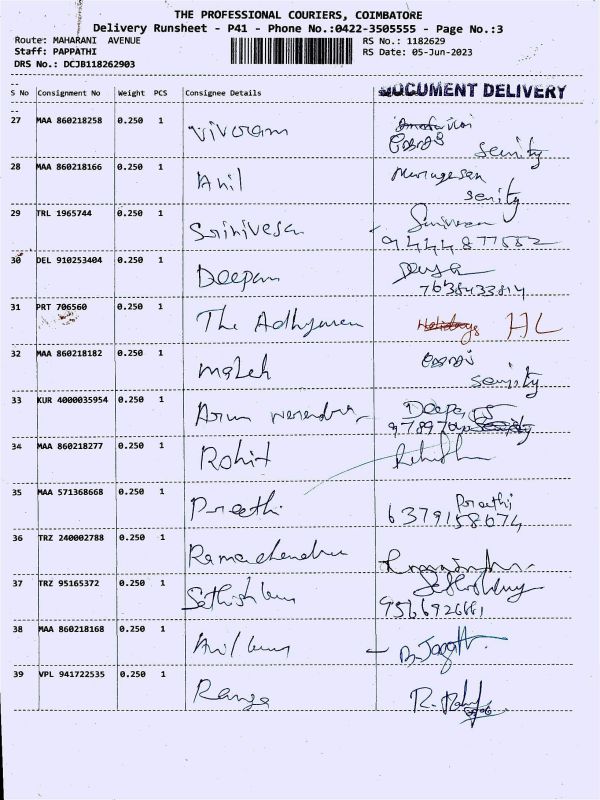 THE PROFESSIONAL COURIERS, COIMBATORE
Delivery Runsheet - P41 - Phone No.:0422-3505555 - Page No.:3
Route: MAHARANI AVENUE RS No.: 1182629
Staff: PAPPATHI RS Date: 05-Jun-2023
DRS No.: DCJB118262903
S No Consignment No Weight PCS Consignee Details DOCUMENT DELIVERY
27 MAA 860218258 0.250 1 Vivoram
senity
28 MAA 860218166 0.250 1 Anil Murugesan
senity
29 TRL 1965744 0.250 1 Srinivesan Srinivasan
9444877882
30 DEL 910253404 0.250 1 Deepam
31 PRT 706560 0.250 1 The Adhyanan Holidays HL
32 MAA 860218182 0.250 1 maleh
senity
33 KUR 4000035954 0.250 1 Arun narendra Deepa
34 MAA 860218277 0.250 1 Rohit
35 MAA 571368668 0.250 1 Preethi Preethi
6379158674
36 TRZ 240002788 0.250 1 Ramachendru
37 TRZ 95165372 0.250 1 Sethish
9566926681
38 MAA 860218168 0.250 1 Anil
39 VPL 941722535 0.250 1 Range